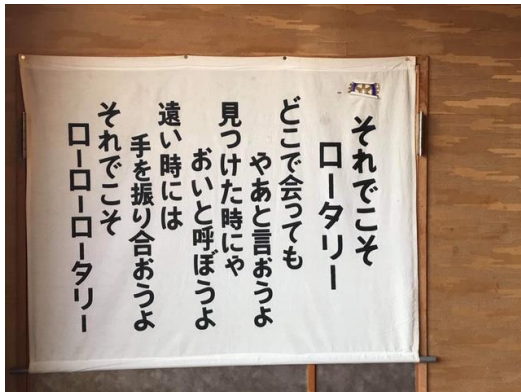 それでこそ
ロータリー
どこで会っても
やあと言おうよ
見つけた時にゃ
おいと呼ぼうよ
遠い時には
手を振り合おうよ
それでこそ
ローローロータリー